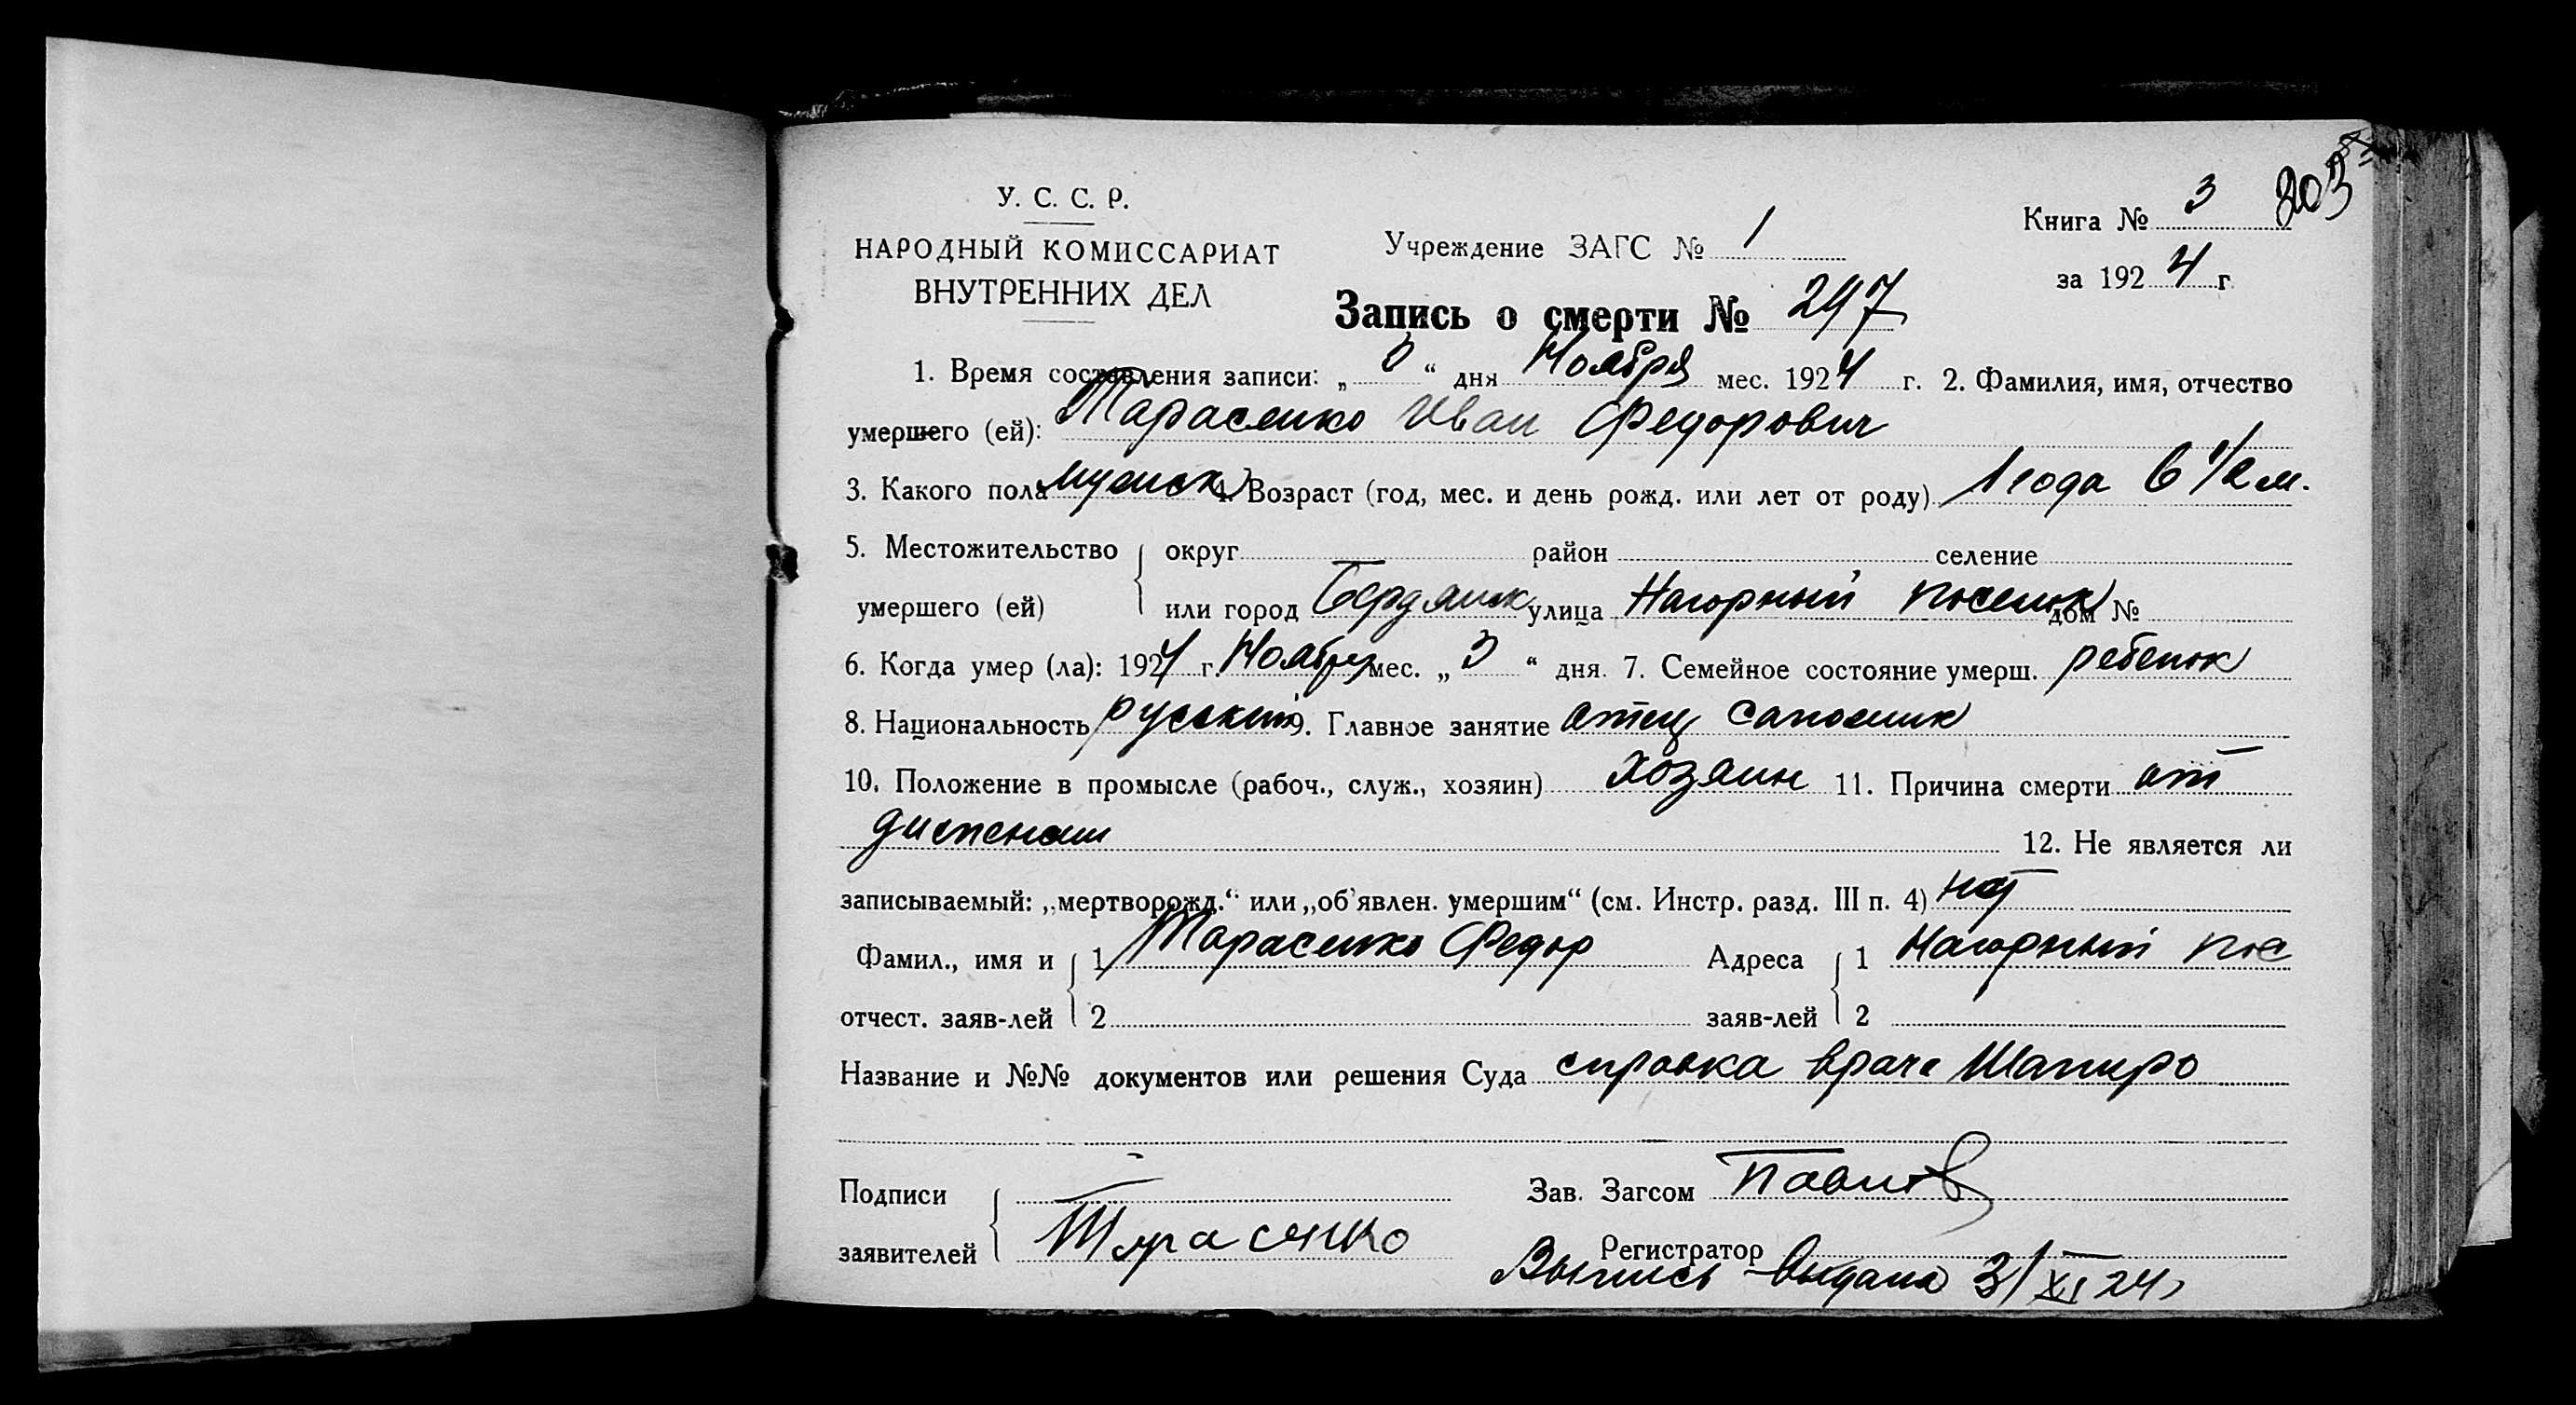 803
У. С. С. Р.
НАРОДНЫЙ КОМИССАРИАТ
ВНУТРЕННИХ ДЕЛ
Учреждение ЗАГС № 1
Книга № 3
за 1924 г.
Запись о смерти № 247
1. Время составления записи: „ 3 “ дня Ноября мес. 1924 г. 2. Фамилия, имя, отчество
умершего (ей): Тарасенко Иван Федорович
3. Какого пола мужск 4. Возраст (год, мес. и день рожд. или лет от роду) 1 года 6 1/2 м.
5. Местожительство округ район селение
умершего (ей) или город Бердянск улица Нагорный поселок дом №
6. Когда умер (ла): 1924 г. Ноября мес. „ 3 “ дня. 7. Семейное состояние умерш. ребенок
8. Национальность русский 9. Главное занятие отец сапожник
10. Положение в промысле (рабоч., служ., хозяин) хозяин 11. Причина смерти от
диспепсии 12. Не является ли
записываемый: „мертворожд.“ или „об’явлен. умершим“ (см. Инстр. разд. III п. 4) нет
Фамил., имя и 1 Тарасенко Федор Адреса 1 Нагорный пос
отчест. заяв-лей 2 заяв-лей 2
Название и №№ документов или решения Суда справка врача Шапиро
Подписи Зав. Загсом
заявителей Тарасенко Регистратор
Выпись выдана 3/XI 24